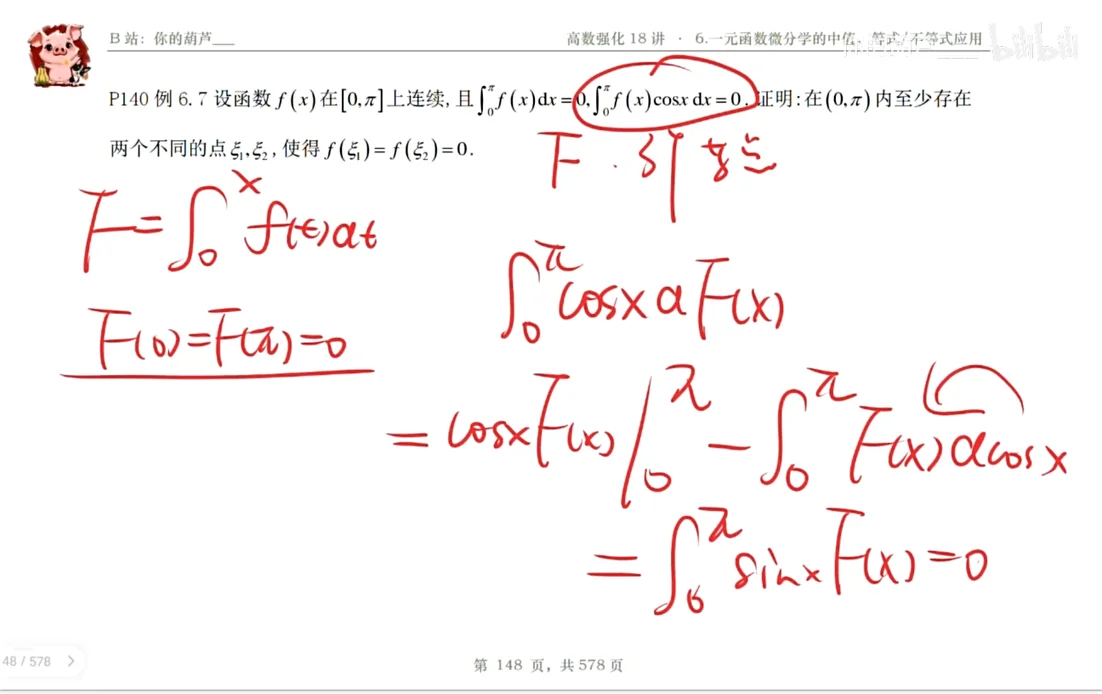 B 站：你的葫芦___
高数强化 18 讲 · 6.一元函数微分学的中值、等式/不等式应用
bilibili
P140 例 6.7 设函数 f(x) 在 [0,π] 上连续, 且 ∫₀^π f(x)dx = 0, ∫₀^π f(x)cosx dx = 0. 证明: 在 (0,π) 内至少存在
两个不同的点 ξ₁,ξ₂, 使得 f(ξ₁) = f(ξ₂) = 0.
F. 3个零点
F = ∫₀^x f(t)dt
∫₀^π cosx dF(x)
F(0) = F(π) = 0
= cosx F(x) |₀^π − ∫₀^π F(x) dcosx
= ∫₀^π sinx F(x) = 0
48 / 578 >
第 148 页，共 578 页